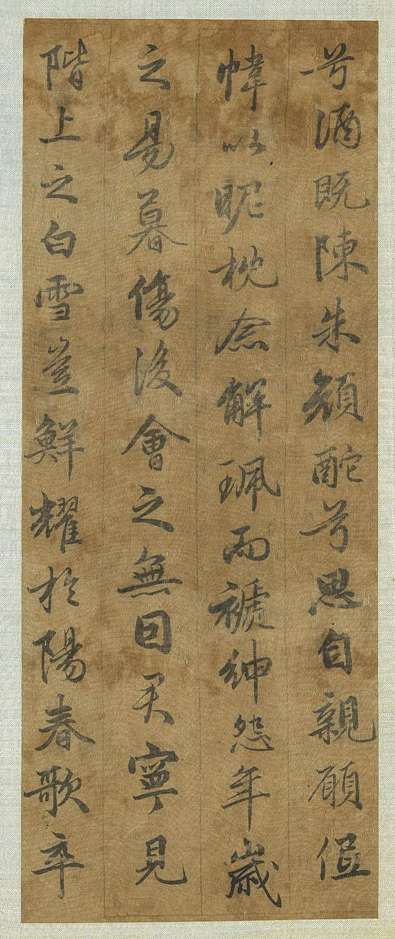 兮酒既陳朱顏酡兮思自親願低
幃以昵枕念解珮而褫紳怨年歲
之易暮傷後會之無因君寧見
階上之白雪豈鮮耀於陽春歌卒